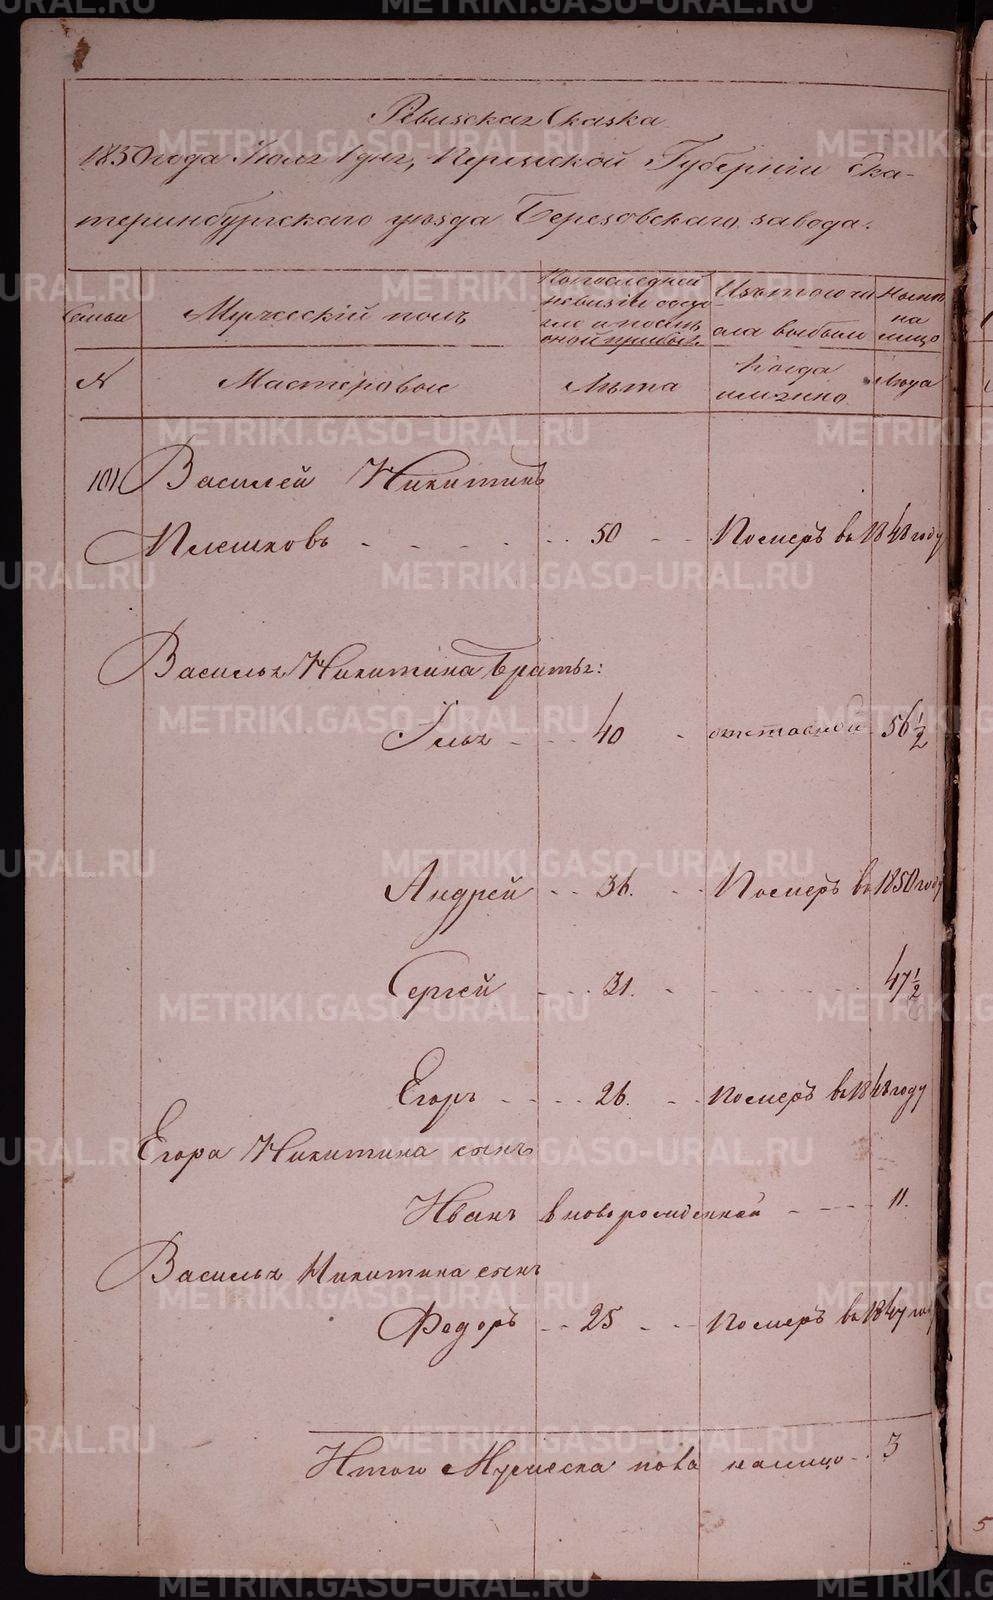 Ревизская Сказка
1850 года Июля 1 дня, Пермской Губерніи Ека-
теринбургскаго уѣзда Березовскаго завода.
Семьи
Мужескій полъ
По последней ревизіи состояло и после оной прибыло
Изъ того числа выбыло
Ныне на лицо
№
Мастеровые
Лѣта
Когда именно
Люда
101 Василей Никитинъ
Плешковъ 50 Померъ въ 1848 году
Василья Никитина братья:
Илья 40 отставной 56 1/2
Андрей 36. Померъ въ 1850 году
Сергей 31. 47 1/2
Егоръ 26. померъ въ 1848 году
Егора Никитина сынъ
Иванъ вновь рожденной 11.
Василья Никитина сынъ
Федоръ 25 померъ въ 1847 году
Итого Мужеска пола на лицо 3
METRIKI.GASO-URAL.RU